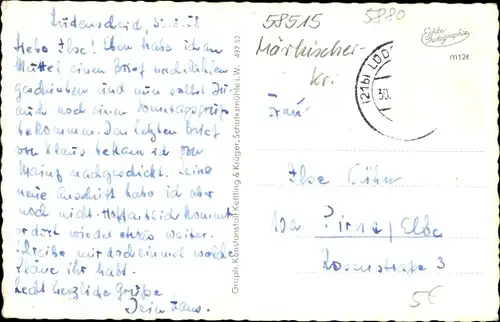 Lüdenscheid,
Liebe Ilse! Eben habe ich an
Muttel einen Brief nach Pählen
geschrieben und nun sollst Du
auch noch einen Sonntagsgruß
bekommen. Den letzten Brief
von Klaus bekam ich von
Mainz nachgeschickt. Seine
neue Anschrift habe ich aber
noch nicht. Hoffentlich kommt
er dort wieder etwas weiter.
Schreibe mir doch einmal welche
Pläne ihr habt.
Recht herzliche Grüße
Dein Hans.
Graph. Kunstanstalt Kettling & Krüger, Schalksmühle i. W. 497 52
58515
5880
Märkischer-
kr.
Echte
Photographie
m 124
(21b) LÜD
30.
Frau
Ilse Kühn
10a Pirna/Elbe
Rosenstraße 3
5€